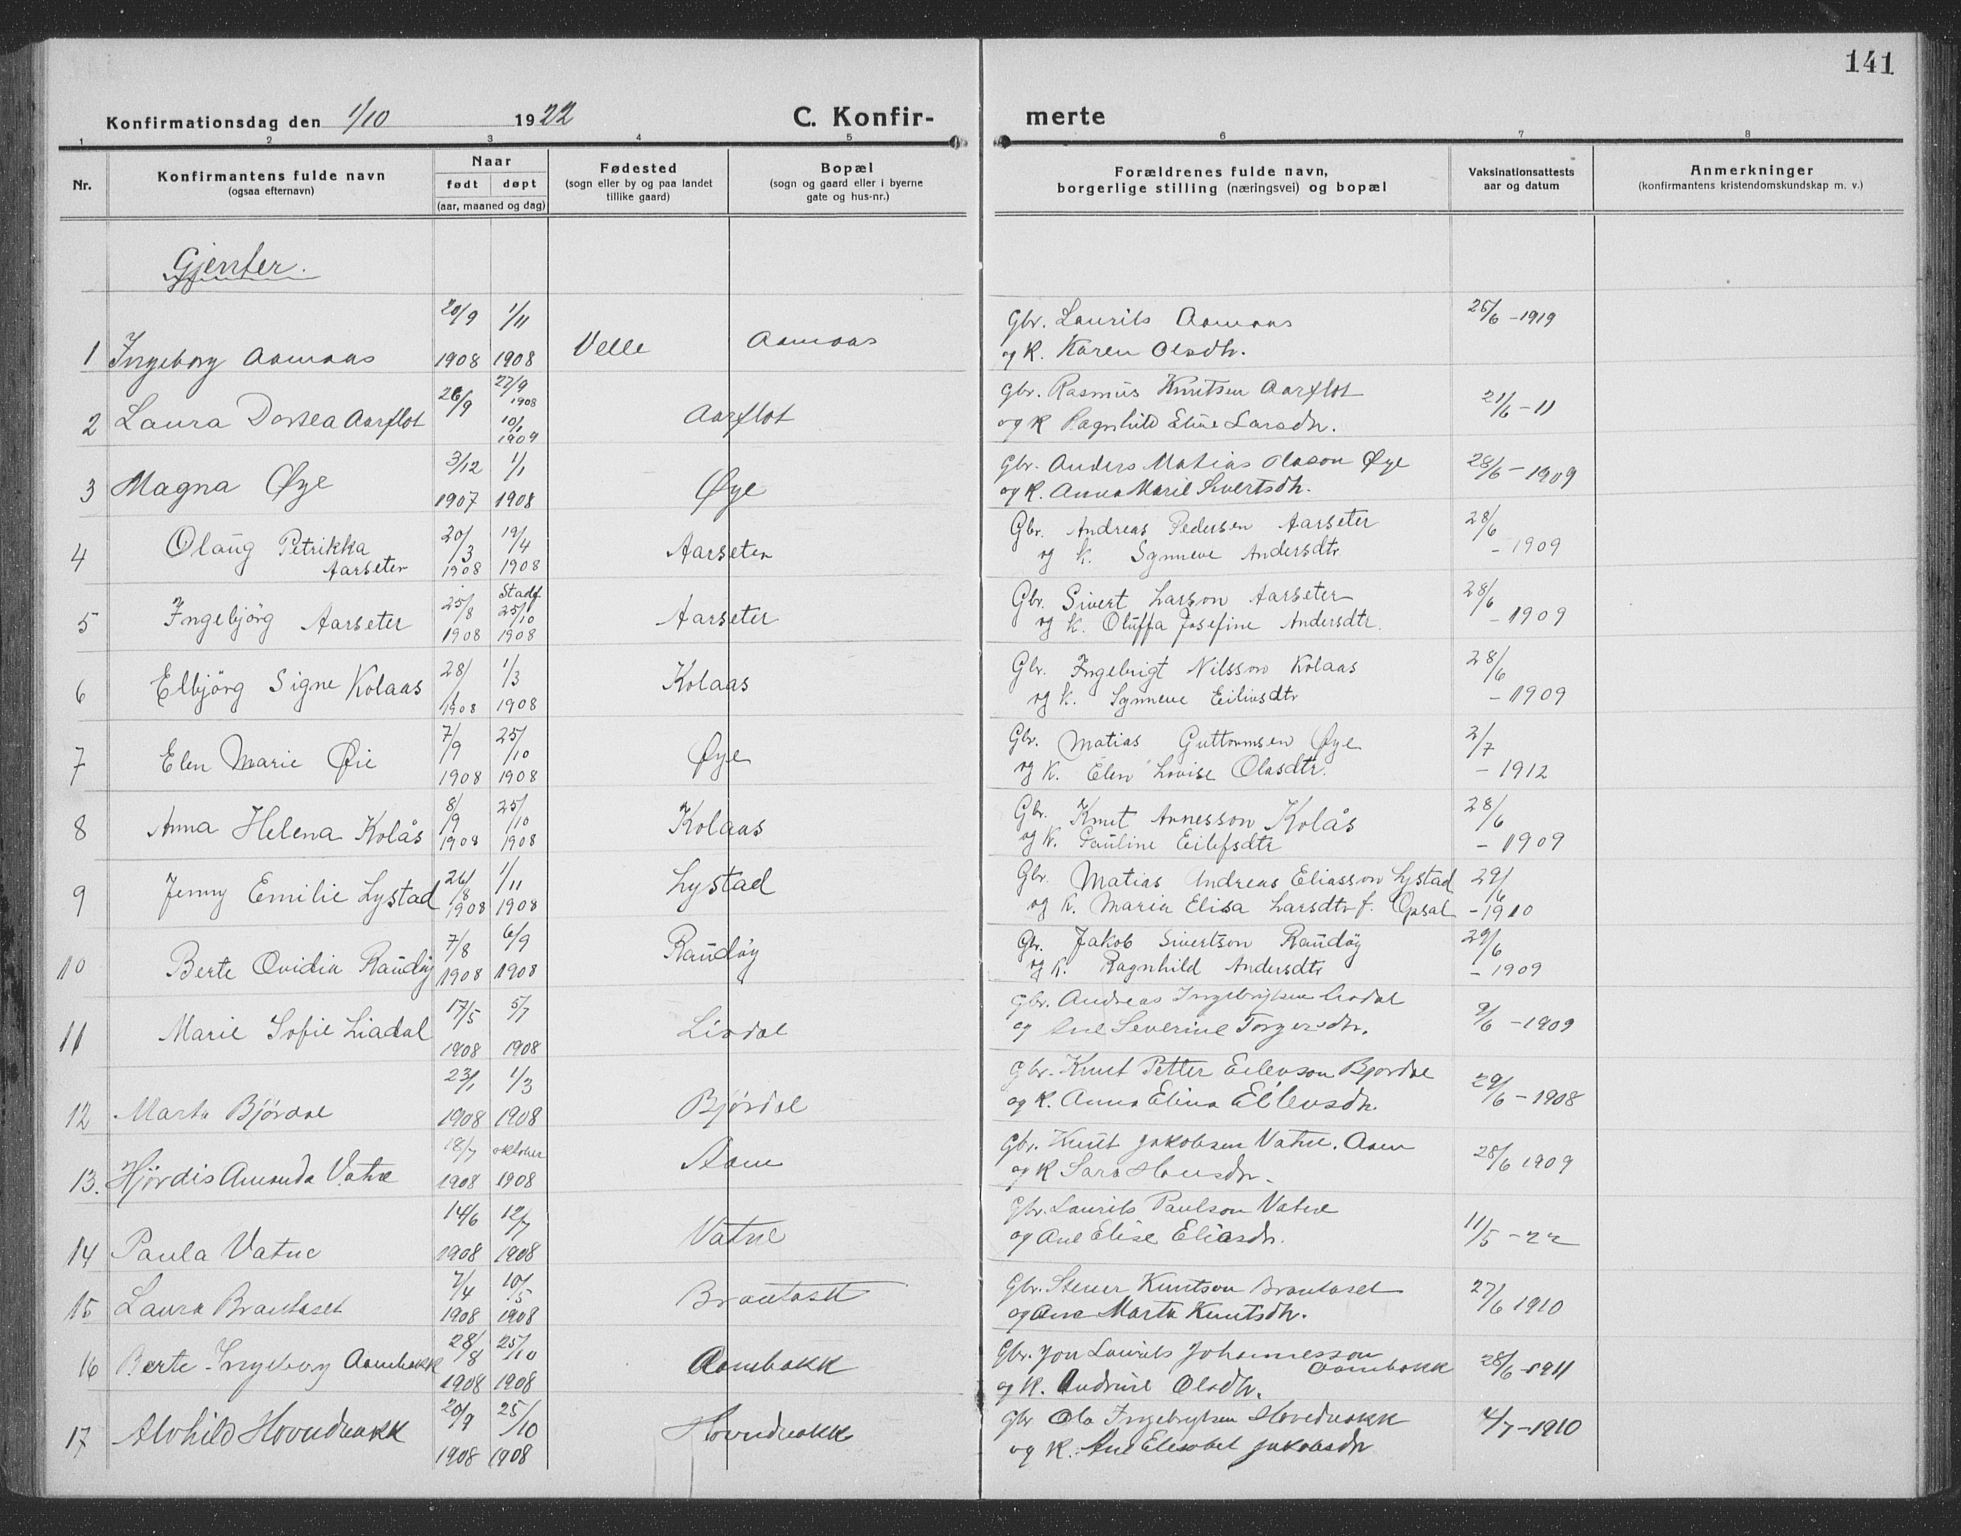 141
Konfirmationsdag den 1/10 1922 C. Konfir- merte
1 2 3 4 5 6 7 8
Nr. Konfirmantens fulde navn (ogsaa efternavn) Naar født døpt (aar, maaned og dag) Fødested (sogn eller by og paa landet tillike gaard) Bopæl (sogn og gaard eller i byerne gate og hus-nr.) Forældrenes fulde navn, borgerlige stilling (næringsvei) og bopæl Vaksinationsattests aar og datum Anmerkninger (konfirmantens kristendomskundskap m. v.)
Gjenter.
1 Ingeborg Aamaas 20/9 1908 1/11 1908 Velle Aamaas Gbr. Laurits Aamaas og K. Karen Olsdtr. 25/6 -1919
2 Laura Dortea Aarflot 26/9 27/9 1908 10/1 1909 Aarflot Gbr. Rasmus Knutsen Aarflot og K Ragnhild Eline Larsdtr. 21/6 -11
3 Magna Øye 3/12 1907 1/1 1908 Øye Gbr. Anders Matias Olason Øye og K. Anna Marie Sivertsdtr. 28/6 -1909
4 Olaug Petrikka Aarseter 20/3 1908 19/4 1908 Aarseter Gbr. Andreas Pedersen Aarseter og K. Synneve Andersdtr. 28/6 -1909
5 Ingebjörg Aarseter 25/8 1908 Stadf. 25/10 1908 Aarseter Gbr. Sivert Larson Aarseter og K. Oluffa Josefine Andersdtr. 28/6 -1909
6 Elbjörg Signe Kolaas 28/1 1908 1/3 1908 Kolaas Gbr. Ingebrigt Nilsson Kolaas og K. Synneve Eilivsdtr 28/6 -1909
7 Elen Marie Øie 7/9 1908 25/10 1908 Øye Gbr. Matias Guttormsen Øye og K. Elen Lovise Olasdtr. 2/7 -1912
8 Anna Helena Kolås 8/9 1908 25/10 1908 Kolaas Gbr. Knut Arnesson Kolås og K. Pauline Eilefsdtr 28/6 -1909
9 Jenny Emilie Lystad 26/8 1908 1/11 1908 Lystad Gbr. Matias Andreas Eliasson Lystad og K. Maria Elisa Larsdtr f. Opsal 29/6 -1910
10 Berte Ovidia Raudöy 7/8 1908 6/9 1908 Raudöy Gbr. Jakob Sivertson Raudöy og K. Ragnhild Andersdtr 29/6 -1909
11 Marie Sofie Liadal 17/5 1908 5/7 1908 Liadal Gbr. Andreas Ingebrigtsen Liadal og Ane Severine Torgersdtr. 9/6 -1909
12 Marta Björdal 23/1 1908 1/3 1908 Bjørdal Gbr. Knut Petter Eilevson Bjordal og K. Anna Elina Eilevsdtr. 29/6 -1908
13. Hjördis Amanda Vatne 18/7 1908 oktober 1908 Aam Gbr. Knut Jakobsen Vatne, Aam og K Sara Hansdtr. 28/6 1909
14 Paula Vatne 14/6 1908 12/7 1908 Vatne Gbr. Laurits Paulson Vatne og Ane Elise Eliasdtr. 11/5 -22
15 Laura Brautaset 7/4 1908 10/5 1908 Brautaset Gbr. Stener Knutson Brautaset og Ane Marta Knutsdtr. 27/6 1910
16 Berte Ingeborg Aambakk 28/8 1908 25/10 1908 Aambakk Gbr. Jon Laurits Johannesson Aambakk og K. Andrine Olsdtr. 28/6 -1911
17 Alvhild Hovudvakk 20/9 1908 25/10 1908 Hovudvakk Gbr Ola Ingebrigtsen Hovedvakk og K. Ane Elisabet Jakobsdtr 4/7 -1910